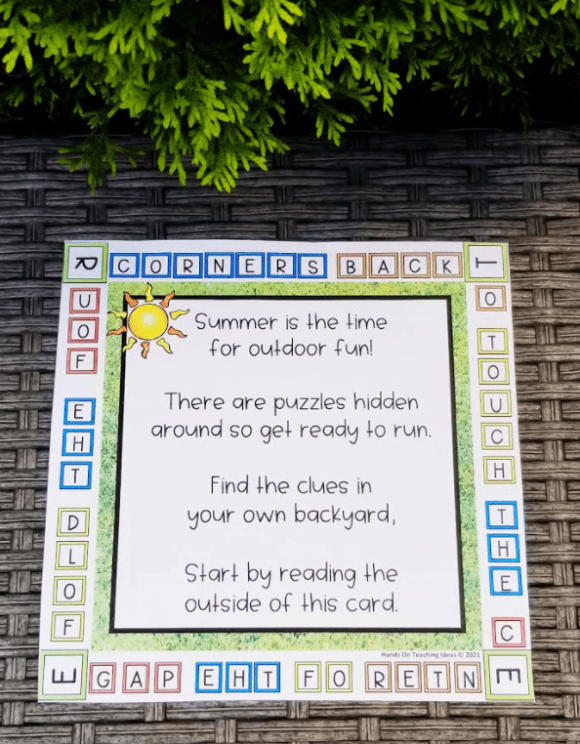 R CORNERS BACK T
UOF EHT DLOF
Summer is the time
for outdoor fun!
There are puzzles hidden
around so get ready to run.
Find the clues in
your own backyard,
Start by reading the
outside of this card.
O TOUCH THE C
Hands On Teaching Ideas © 2021
E GAP EHT FO RETN E